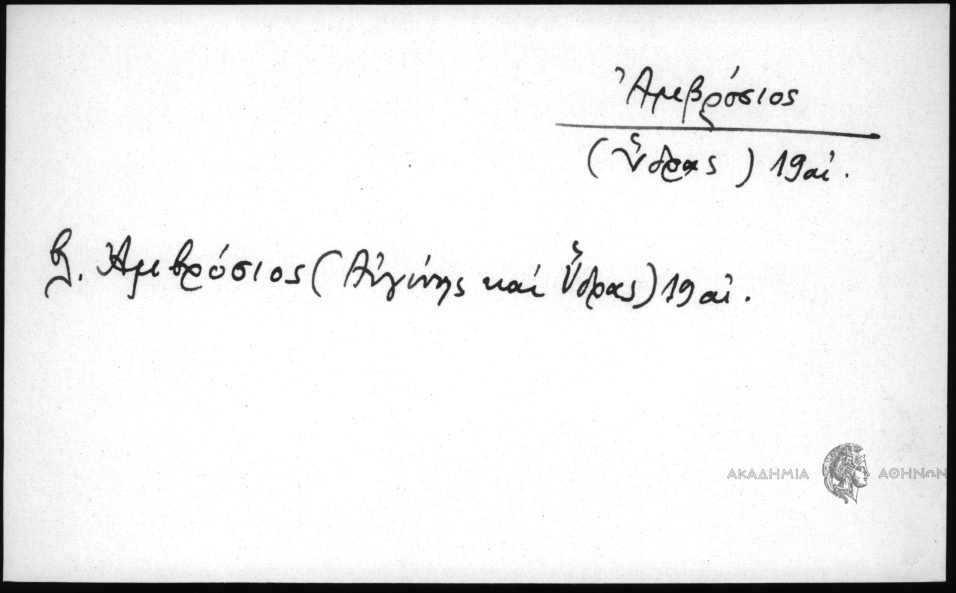 Ἀμβρόσιος
(Ὕδρας) 19 αἰ.
β. Ἀμβρόσιος (Αἰγίνης καί Ὕδρας) 19 αἰ.
ΑΚΑΔΗΜΙΑ ΑΘΗΝΩΝ